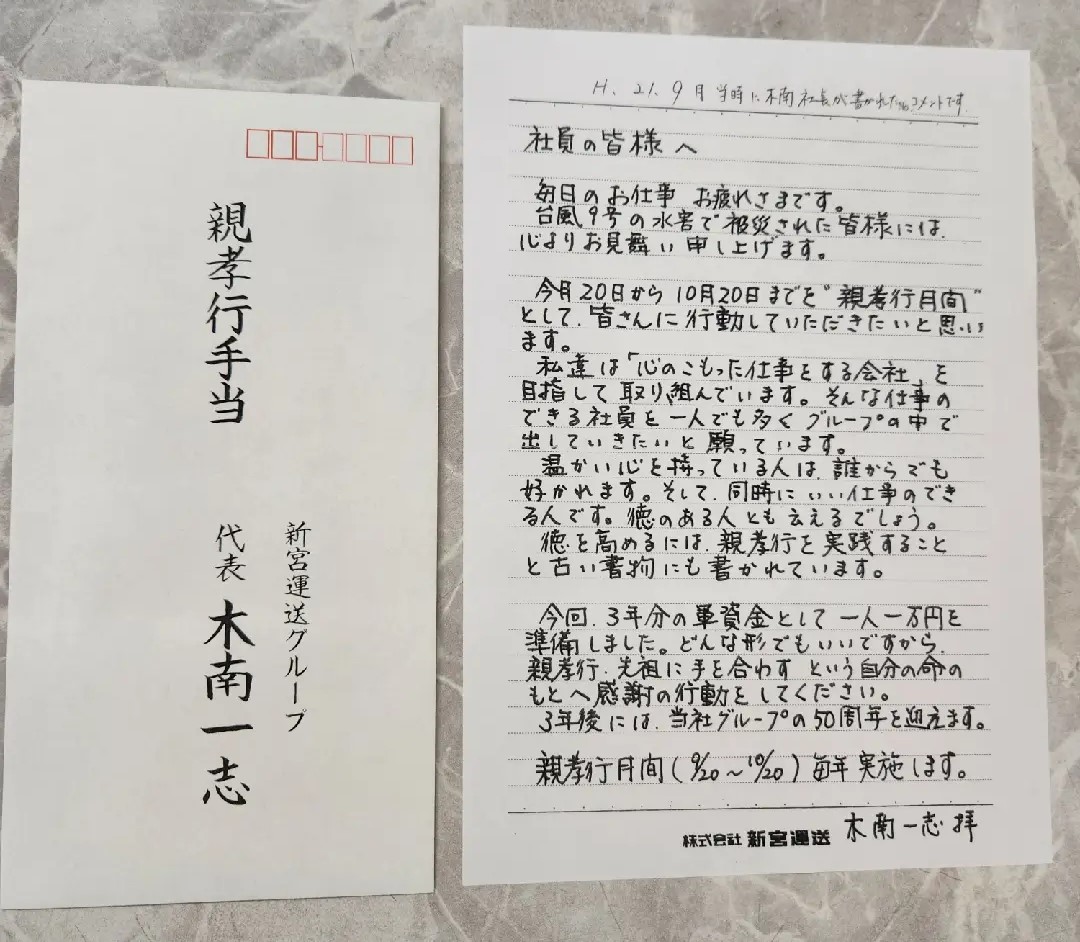 親孝行手当
新宮運送グループ
代表 木南一志
H. 21. 9月 当時に木南社長が書かれたコメントです.
社員の皆様へ
毎日のお仕事 お疲れさまです。
台風9号の水害で被災された皆様には、
心よりお見舞い申し上げます。
今月20日から10月20日までを“親孝行月間”
として、皆さんに行動していただきたいと思い
ます。
私達は「心のこもった仕事をする会社」を
目指して取り組んでいます。そんな仕事の
できる社員を一人でも多くグループの中で
出していきたいと願っています。
温かい心を持っている人は、誰からでも
好かれます。そして、同時にいい仕事のでき
る人です。徳のある人とも云えるでしょう。
徳を高めるには、親孝行を実践すること
と古い書物にも書かれています。
今回、3年分の軍資金として一人一万円を
準備しました。どんな形でもいいですから、
親孝行、先祖に手を合わす という自分の命の
もとへ感謝の行動をしてください。
3年後には、当社グループの50周年を迎えます。
親孝行月間(9/20~10/20)毎年実施します。
株式会社 新宮運送 木南一志 拝